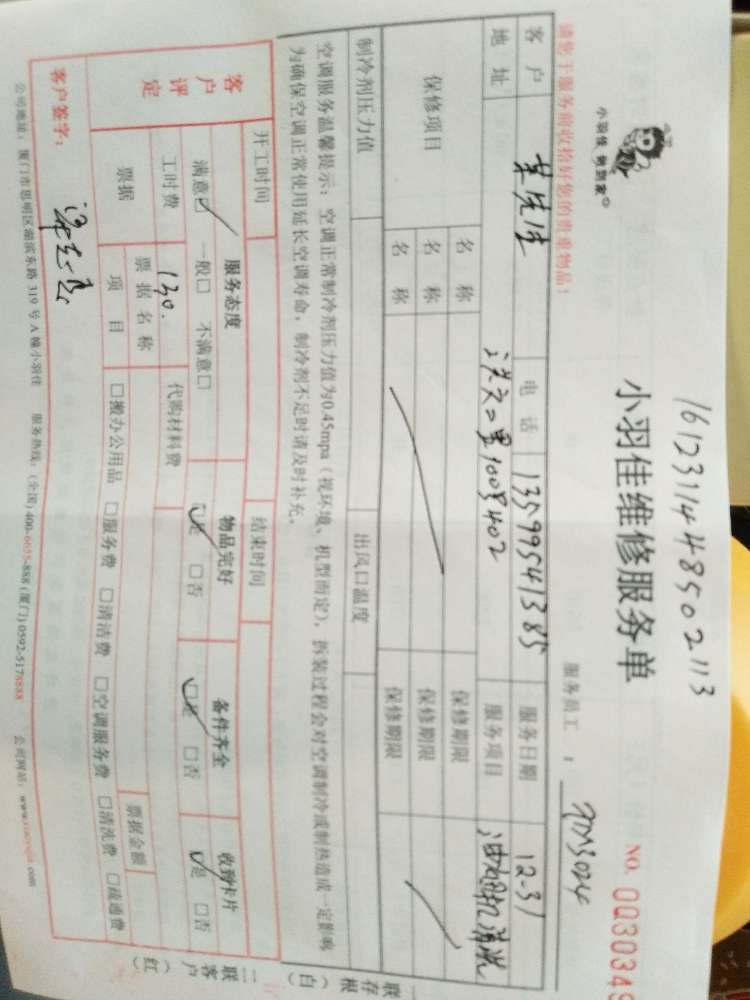 1612311448502113
小羽佳 俩到家
小羽佳维修服务单
NO. 0030345
请您于服务前收拾好您的贵重物品!
服务员工:
客户 电话 13599541385 服务日期 12-31
地址 洪文二里100号402 服务项目 油烟机清洗
保修项目 名称 保修期限
名称 保修期限
名称 保修期限
制冷剂压力值 出风口温度
空调服务温馨提示:空调正常制冷剂压力值为0.45mpa(视环境、机型而定),拆装过程会对空调制冷或制热造成一定影响
为确保空调正常使用延长空调寿命,制冷剂不足时请及时补充。
开工时间 结束时间
客户评定 服务态度 物品完好 备件齐全 收到卡片
满意☑ 一般□ 不满意□ ☑是 □否 ☑是 □否 ☑是 □否
工时费 130. 代购材料费
票据 票据名称 票据金额
项目 □搬办公用品 □服务费 □清洁费 □空调服务费 □清洗费 □疏通费
客户签字:
公司地址:厦门市思明区湖滨东路319号A幢小羽佳 服务热线:(全国)400-6655-888 (厦门)0592-5178888 公司网站:
存根联(白)
二联客户(红)